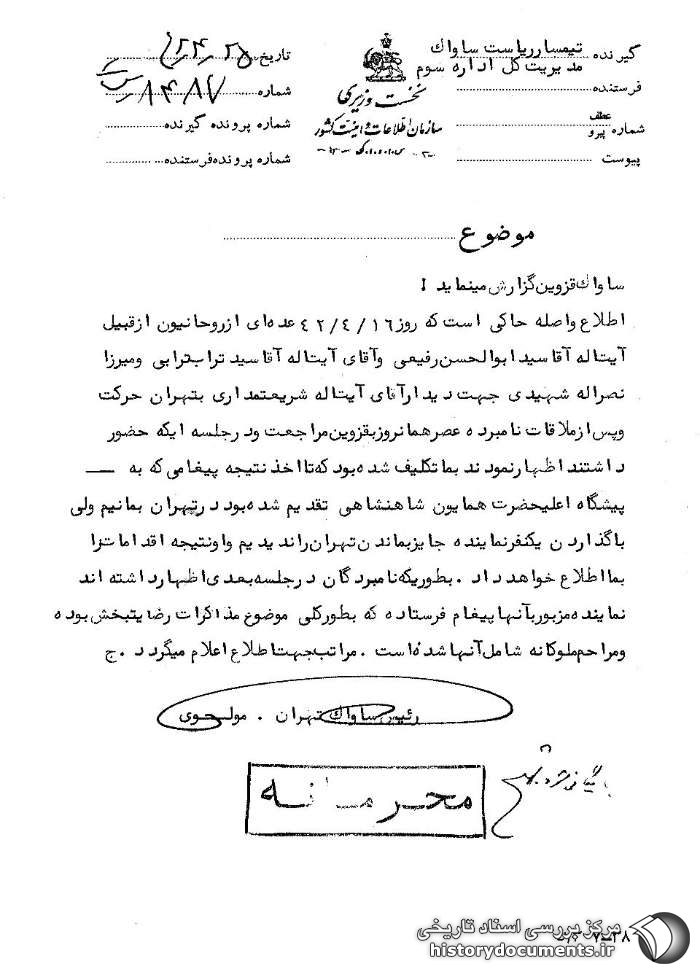 گیرنده تیمسار ریاست ساواك
مدیریت کل اداره سوم
فرستنده
عطف
شماره پیرو
پیوست
نخست وزیری
سازمان اطلاعات و امنیت کشور
س.ا.و.ا.ك
تاریخ
شماره
شماره پرونده گیرنده
شماره پرونده فرستنده
موضوع
ساواك قزوین گزارش مینماید :
اطلاع واصله حاکی است که روز ۴۲/۴/۱۶ عده‌ای از روحانیون از قبیل
آیت‌اله آقا سید ابوالحسن رفیعی و آقای آیت‌اله آقا سید تراب ترابی و میرزا
نصراله شهیدی جهت دیدار آقای آیت‌اله شریعتمداری بتهران حرکت
و پس از ملاقات نامبرده عصر همانروز بقزوین مراجعت و در جلسه ایکه حضور
داشتند اظهار نمودند بما تکلیف شده بود که تا اخذ نتیجه پیغامی که به —
پیشگاه اعلیحضرت همایون شاهنشاهی تقدیم شده بود در تهران بمانیم ولی
با گذاردن یکنفر نماینده جایز بماندن تهران راندیدیم و او نتیجه اقدامات را
بما اطلاع خواهد داد . بطوریکه نامبردگان در جلسه بعدی اظهار داشته اند
نماینده مزبور بآنها پیغام فرستاده که بطور کلی موضوع مذاکرات رضایتبخش بوده
و مراحم ملوکانه شامل آنها شده است . مراتب جهت اطلاع اعلام میگردد . ج
رئیس ساواك تهران . مولوی
محرمانه
مرکز بررسی اسناد تاریخی
historydocuments.ir